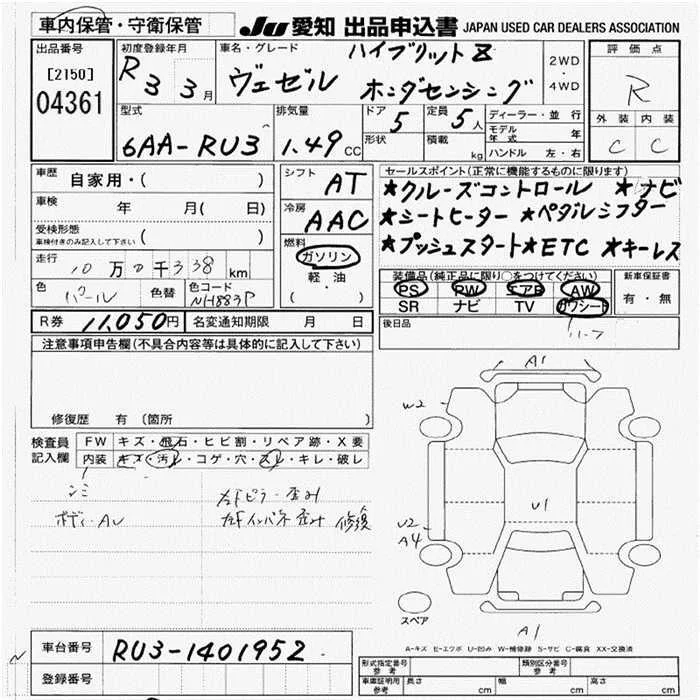 車内保管・守衛保管
JU 愛知 出品申込書 JAPAN USED CAR DEALERS ASSOCIATION
出品番号
[2150]
04361
初度登録年月
R3 3月
車名・グレード
ハイブリットZ
ヴェゼル ホンダセンシング
2WD
・
4WD
評価点
R
外装 内装
C C
型式
6AA-RU3
排気量
1.49CC
ドア 5
形状
定員 5人
積載 kg
ディーラー・並行
モデル年式 年
ハンドル 左・右
車歴
自家用・( )
車検
年 月( 日)
受検形態
車検付きのみ記入して下さい ( )
走行
10万0千338km
色 パール
色替
色コード
NH883P
シフト
AT
冷房
AAC
燃料
ガソリン
軽・油
( ・ )
セールスポイント(正常に機能するものに限ります)
★クルーズコントロール ★ナビ
★シートヒーター ★ペダルシフター
★プッシュスタート★ETC ★キーレス
装備品(純正品に限り○をつけてください)
PS PW エアB AW
SR ナビ TV カワシート
新車保証書
有・無
R券 11,050円
名変通知期限 月 日
後日品
注意事項申告欄(不具合内容等は具体的に記入して下さい)
修復歴 有 (箇所 )
検査員
記入欄
FW キズ・飛石・ヒビ割・リペア跡・X要
内装 キズ・汚レ・コゲ・穴・スレ・キレ・破レ
ボディーAU
修復
A1
W2
U1
U2
A4
スペア
A1
A-キズ E-エクボ U-凹み W-補修跡 S-サビ C-腐食 XX-交換済
車台番号
RU3-1401952
登録番号
形式指定番号
参考
類別区分番号
参考
車庫証明用
参考
長さ cm
幅 cm
高さ cm